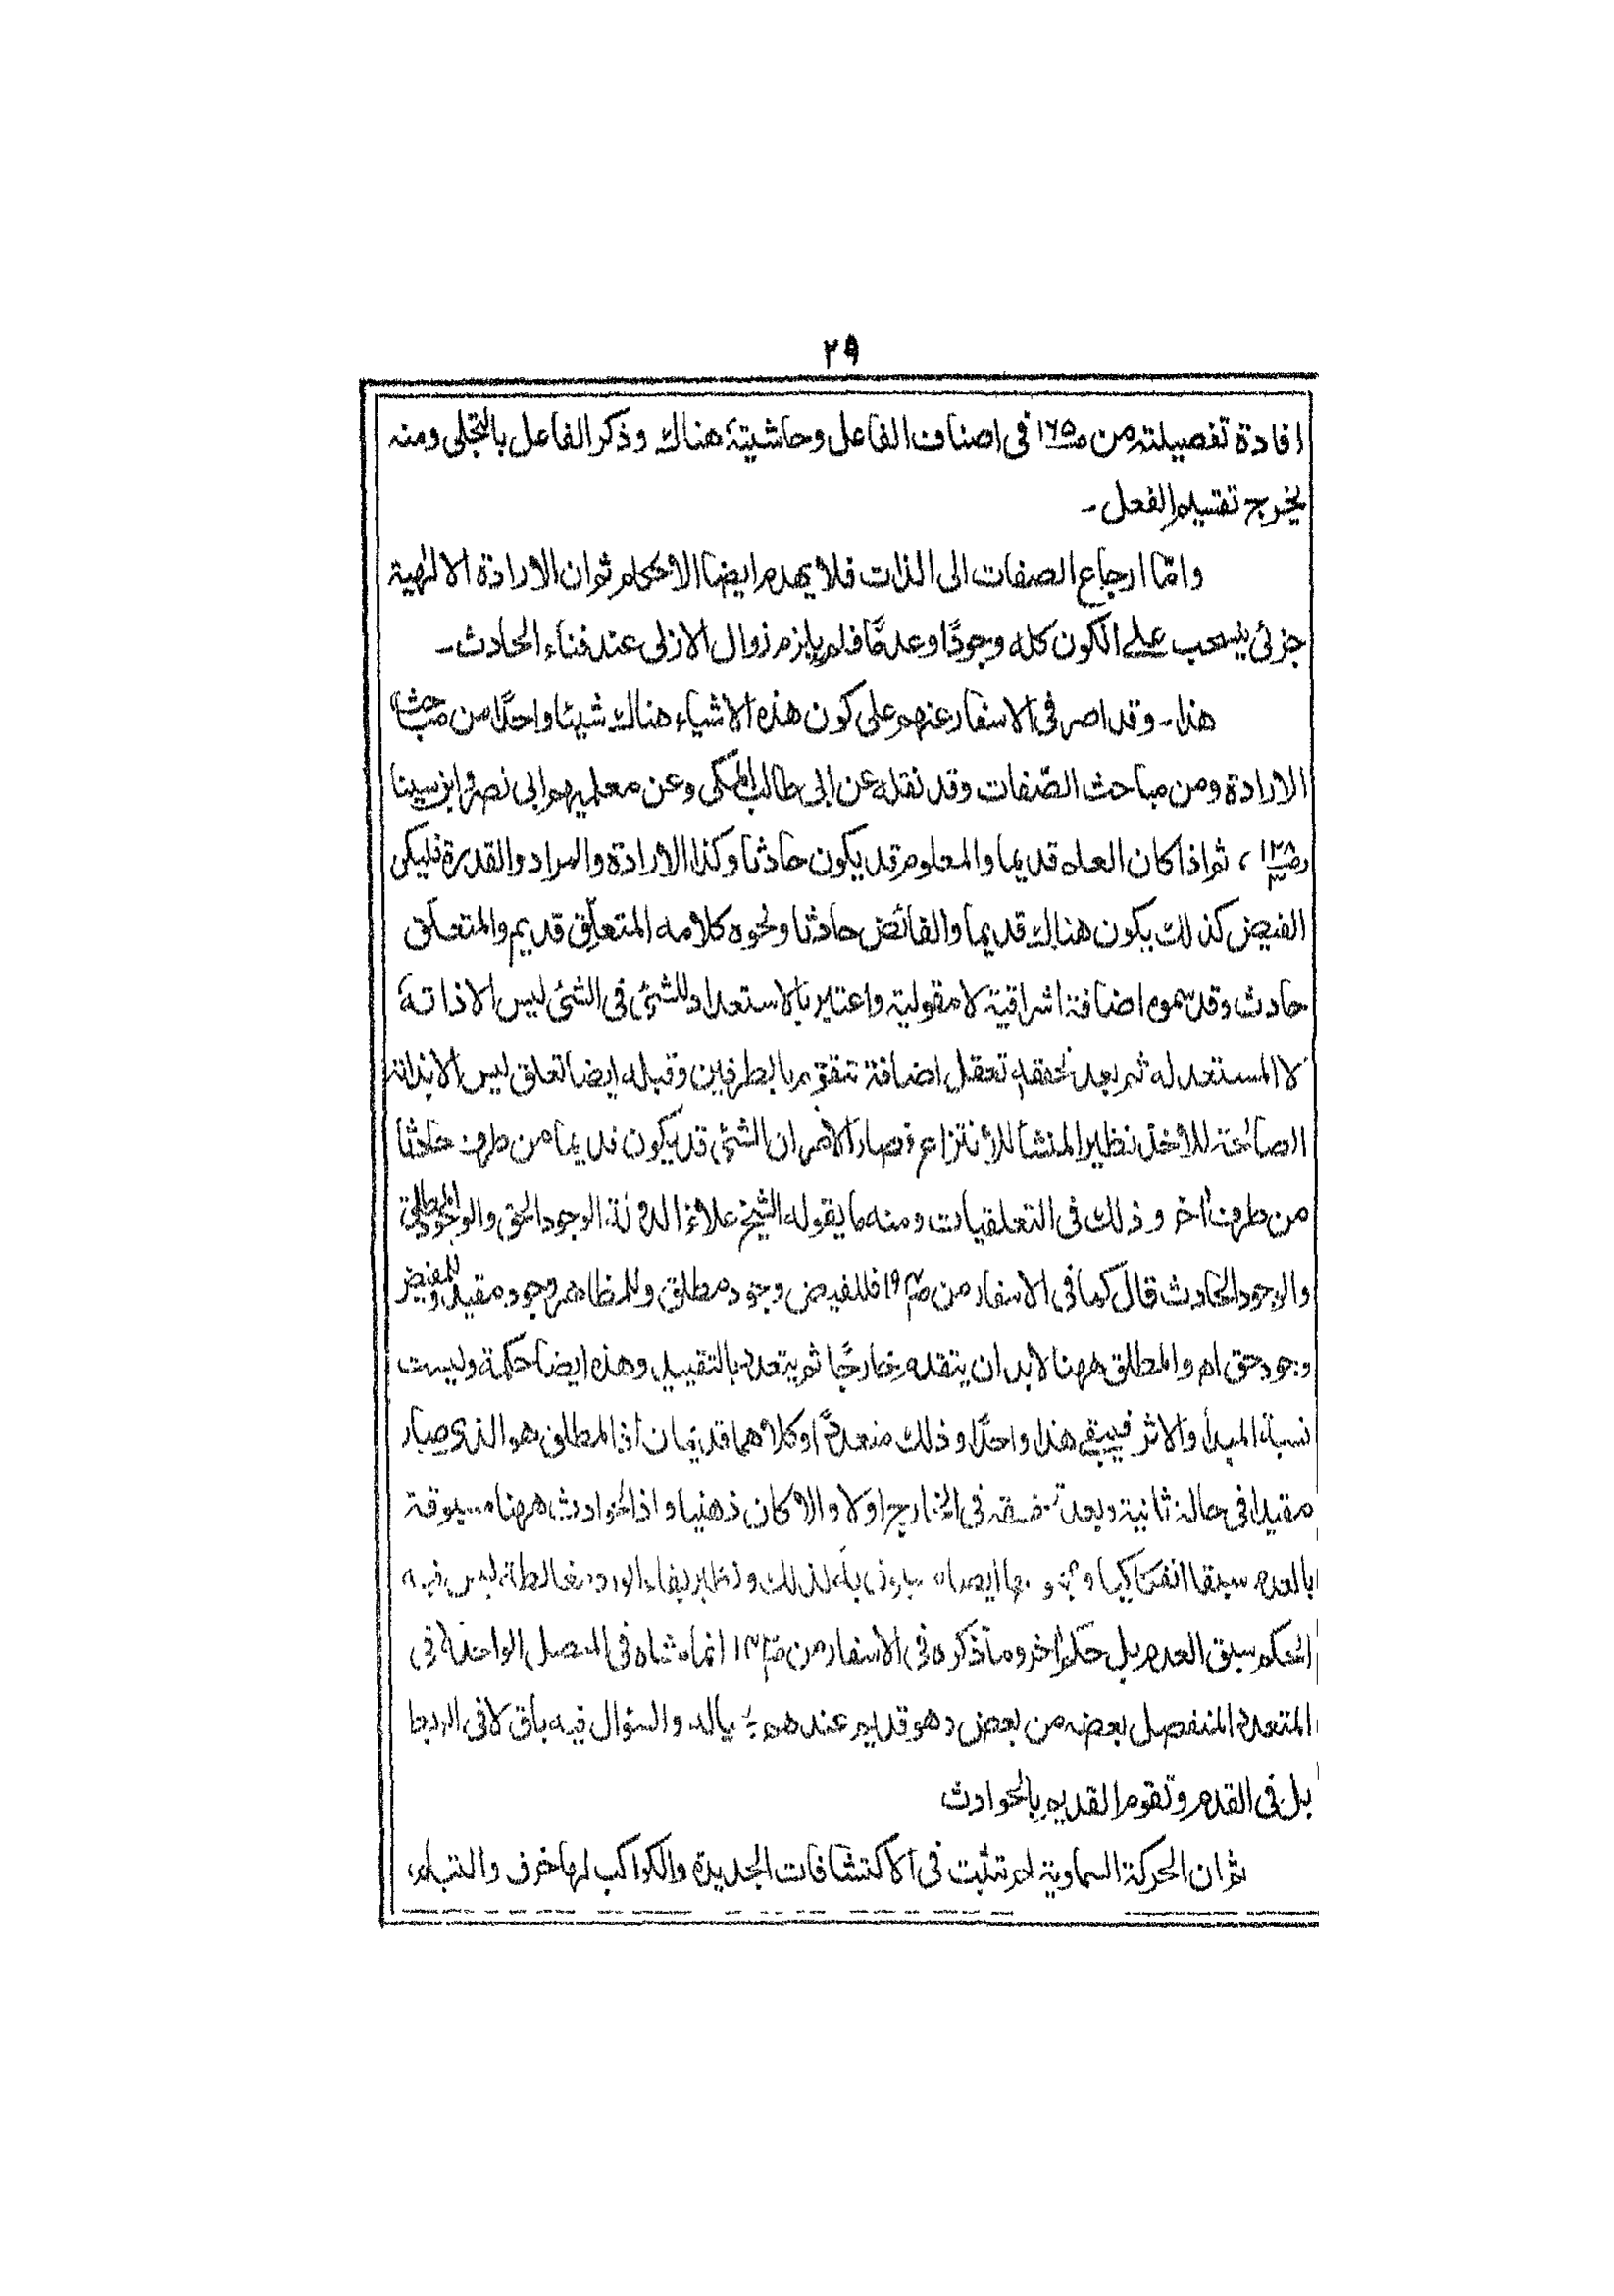 ٢٩
افادة تفصيلته من ص١٦٥ في اصناف الفاعل وحاشيته هناك وذكر الفاعل بالتجلى ومنه
يخرج تقسيم الفعل -
وامّا ارجاع الصفات الى الذات فلا يهدم ايضا الاحكام ثم ان الارادة الالٰهية
جزئى ينسحب على الكون كله وجودًا وعدمًا فلم يلزم زوال الازلى عند فناء الحادث -
هذا - وقد اصر فى الاسفار عنهم على كون هذه الاشياء هناك شيئا واحدًا من مباحث
الارادة ومن مباحث الصّفات وقد نقله عن ابى طالب المكى وعن معلميهم ابى نصر وابن سينا
ص١٢٨، ثم اذا كان العلم قديما والمعلوم قد يكون حادثا وكذا الارادة والمراد والقدرة فليكن
الفيض كذلك يكون هناك قديما والفائض حادثا ونحوه كلامه المتعلِّق قديم والمتعلَّق
حادث وقد سموه اضافة اشراقية لا مقولية واعتبر بالاستعداد للشئ فى الشئ ليس الا ذاته
لا المستعد له ثم بعد تحققه تعقل اضافة تتقوم بالطرفين وقبله ايضا تعلق ليس الا بذاته
الصالحة للاخذ نظير المنشأ للانتزاع فصار الامر ان الشئ قد يكون قديما من طرف حادثا
من طرف اخر وذلك فى التعلقيات ومنه ما يقوله الشيخ علاؤ الدولة، الوجود الحق والوجود المطلق
والوجود الحادث قال كما فى الاسفار من فللفيض وجود مطلق وللمظاهر وجود مقيد وللمفيض
وجود حق اه والمطلق ههنا لابد ان يتقدم خارجًا ثم يتعدد بالتقييد وهذه ايضا حكمة وليست
نسبة المبدأ والاثر فيبقى هذا واحدًا وذلك متعددًا او كلاهما قديمان اذ المطلق هو الذى صار
مقيدا فى حالة ثانية وبعد تحققه فى الخارج اولا والا كان ذهنيا واذ الحوادث ههنا مسبوقة
بالعدم سبقا انفكاكيا لذلك مغالطة ليس فيه
الحكم سبق العدم بل حكم اخر وما ذكره فى الاسفار من انما مشاه فى المتصل الواحد لا فى
المتعدد المنفصل بعضه من بعض وهو قديم عندهم والسؤال فيه باق لا فى الربط
بل فى القدم وتقوم القديم بالحوادث
ثم ان الحركة السماوية لم تثبت فى الاكتشافات الجديدة والكواكب لها خرق والتيام،